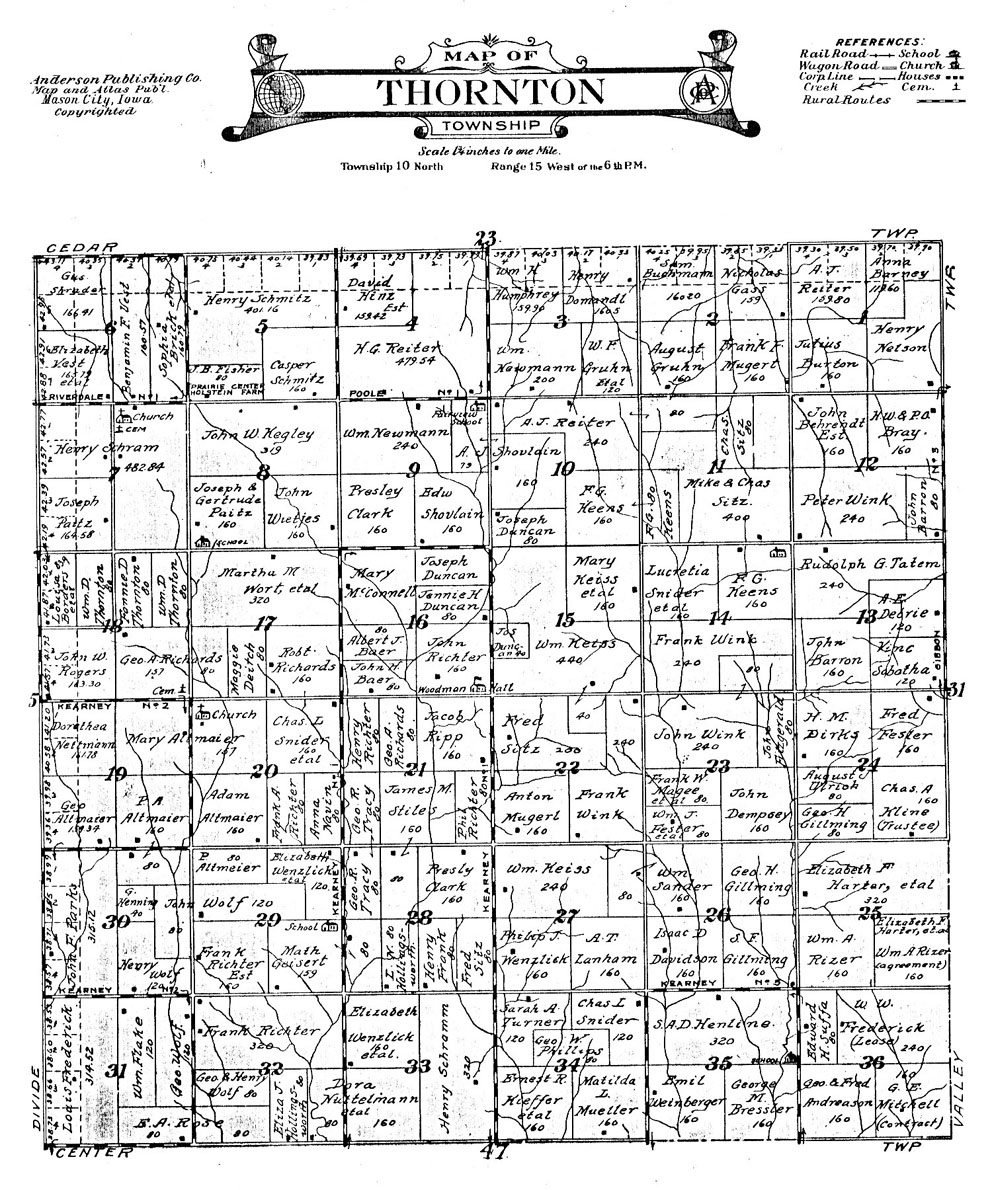 MAP OF
THORNTON
TOWNSHIP
Scale 1¾ inches to one Mile.
Township 10 North Range 15 West of the 6th P.M.
Anderson Publishing Co.
Map and Atlas Publ.
Mason City, Iowa
Copyrighted
REFERENCES:
Rail Road School
Wagon Road Church
Corp Line Houses
Creek Cem.
Rural Routes
CEDAR 23 TWP.
Gus
Shruder
166.41
6
Elizabeth
Vest
et al
RIVERDALE
Benjamin F. Vest
160.57
Sophia
Brick
Nº 1
Henry Schmitz
401.16
5
J.B. Fisher
80
PRAIRIE CENTER
HOLSTEIN FARM
Casper
Schmitz
160
David
Hinz
Est
159.42
4
H.G. Reiter
479.54
POOLE Nº 1
Wm H.
Humphrey
159.90
Henry
Domandl
160.5
3
Wm.
Newmann
200
W.F.
Gruhn
Etal
120
Sam.
Buchmann
160.20
Nicholas
Gass
159
2
August
Gruhn
160
Frank F.
Mugerl
160
A.J.
Reiter
159.80
Anna
Barney
1
Julius
Burton
160
Henry
Nelson
TWP.
Church
CEM
Henry Schram
7
482.84
Joseph
Paitz
164.58
John W Kegley
319
8
Joseph &
Gertrude
Paitz
160
John
Wietjes
160
SCHOOL
Fairview
School
Wm. Newmann
240
A. J
79
9
Presley
Clark
160
Edw
Shovlain
160
A.J. Reiter
240
Shovlain
160
10
F.G.
Keens
160
Joseph
Duncan
80
80
Chas.
Sitz
80
11
Mike & Chas
Sitz.
400
F.G. 80
Keens
John
Behrendt
Est.
160
H.W. & P.O.
Bray.
160
12
Peter Wink
240
John
Barron
80
Nº 3
Louisa E
Borders
etal
Wm. D.
Thornton
Fonnie D
Thornton
80
Wm. D
Thornton
80
18
John W.
Rogers
163.30
Geo A Richards
157 80
Cem
Martha M
Wort, etal
320
17
Maggie
Deitch
80
Robt.
Richards
160
Mary
McConnell
80
Joseph
Duncan
Jennie H
Duncan
80
16
Albert J.
Baer
John H.
Baer 80
John
Richter
160
Woodman Hall
Mary
Keiss
etal
160
15
Jos
Duncan 40
Wm. Keiss
440
Lucretia
Snider
etal
160
F.G.
Keens
160
14
Frank Wink
240
80
Rudolph G. Tatem
240
13
A.E.
Dearie
120
John
Barron
160
King
Sabatha
120
GIBBON
5 31
KEARNEY Nº 2
Dorathea
Nettmann
Mary Altmaier
157
19
Geo
Altmaier
P. A
Altmaier
160
Church
Chas. L
Snider
160
etal
20
Adam
Altmaier
160
Frank A.
Richter
80
Anna
Navin
80
Henry
Richter
80
Geo. A.
Richards
80
Jacob
Ripp
160
21
Geo. R.
Tracy
80
James M.
Stiles
160
Phil
Richter
80
Fred
Sitz 200
40
240
22
Anton
Mugerl
160
Frank
Wink
John Wink
240
John
Fitzgerald
80
23
Frank W.
Magee
et al 80
Wm. J.
Fester
etal 80
John
Dempsey
160
H. M.
Dirks
160
Fred
Fester
160
24
August J
Ulrich
80
Geo H
Gillming
80
Chas. A
Kline
(Trustee)
160
80
G.
Henning
40
John Wolf 120
John F. Parks
315.12
30
80
Henry Wolf
120
KEARNEY Nº 2
P 80
Altmeier
Elizabeth
Wenzlick
etal 120
29
School
Frank
Richter
Est
160
Math
Geisert
159
KEARNEY
Geo. R.
Tracy
80
80
Presly
Clark
160
28
80
E.W. 80
Hollingsworth
Henry
Frank
80
Fred
Sitz
80
KEARNEY
Wm. Keiss
240
80
27
Philip J.
Wenzlick
160
A.T.
Lanham
160
Wm.
Sander
160
Geo. H.
Gillming
160
26
Isaac D
Davidson
160
S. F.
Gillming
160
KEARNEY Nº 5
Elizabeth F
Harter, etal
320
25
Wm. A.
Rizer
160
Elizabeth F.
Harter, etal
Wm A Rizer
(agreement)
160
Louis Frederick
314.52
31
Wm. Flake
120
Geo. Wolf
120
E.A. Rose
80 80
Frank Richter
320
32
Geo. & Henry
Wolf 80
Eliza J.
Hollingsworth
80
Elizabeth
Wenzlick
160
etal.
33
Dora
Nuttelmann
etal
160
Henry Schramm
320
Sarah A
Turner
120
Chas. L
Snider
120
Geo W.
Phillips
80
34
Ernest R.
Kieffer
etal
160
Matilda
L.
Mueller
160
S.A.D. Henline.
320
35
SCHOOL
Emil
Weinberger
160
George
M.
Bressler
160
Edward
H. Suffa
80
W W.
Frederick
(Lease)
240
36
Geo. & Fred
Andreason
160
160
G. E.
Mitchell
(Contract)
DIVIDE
VALLEY
CENTER 47 TWP